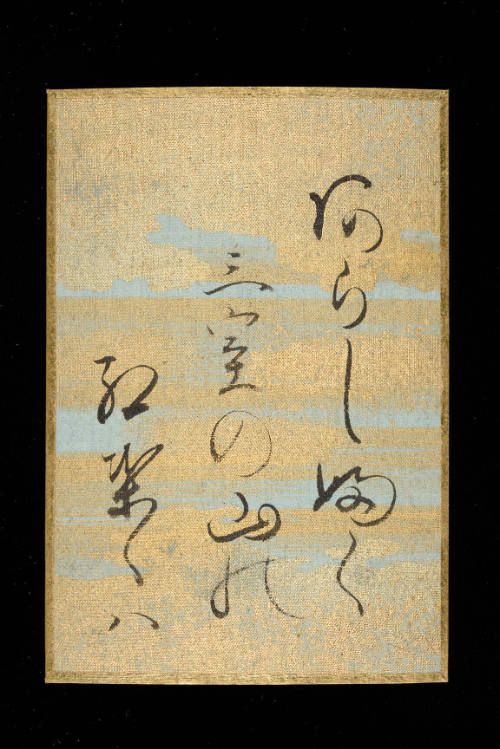 あらしふく
三室の山の
紅葉ゝハ